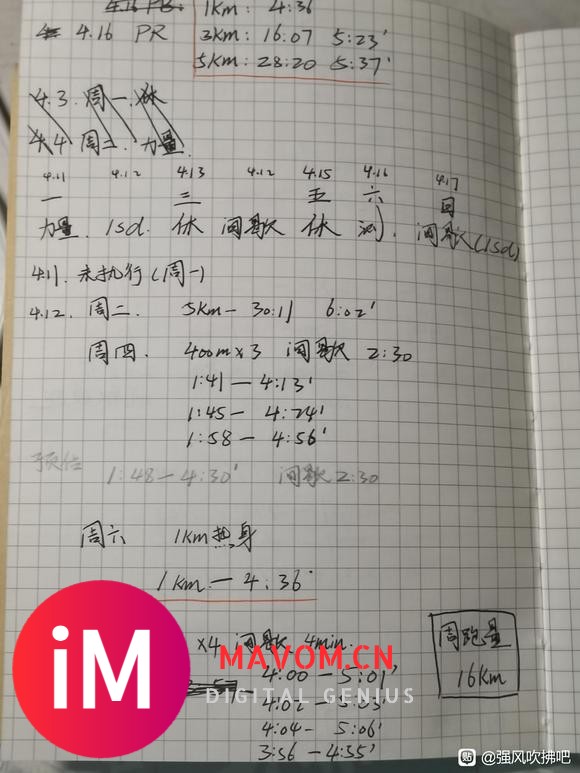 4.16 PB 1km: 4:36
4.16 PR 3km: 16:07 5:23'
5km: 28:20 5:37'
4.3. 周一.休
4.4 周二. 力量.
4.11 4.12 4.13 4.12 4.15 4.16 4.17
一 三 五 六 日
力量. lsd. 休 间歇 休 测. 间歇(lsd)
4.11. 未执行(周一)
4.12. 周二. 5km— 30:11 6:02'
周四. 400m×3 间歇 2:30
1:41 — 4:13'
1:45 — 4:24'
1:58 — 4:56'
预估 1:48 — 4:30' 间歇 2:30
周六 1km热身
1km. — 4:36'
×4 间歇 4min.
4:00 — 5:01'
4:02 — 5:03'
4:04 — 5:06'
3:56 — 4:55'
周跑量
16km
iM
MAVOM.CN
DIGITAL GENIUS
贴 @强风吹拂吧